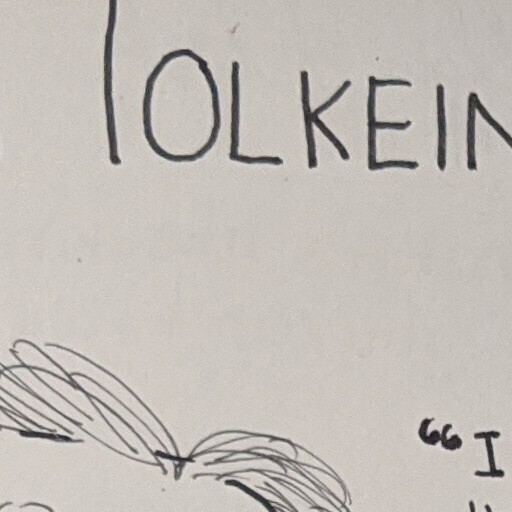 TOLKEIN
“I